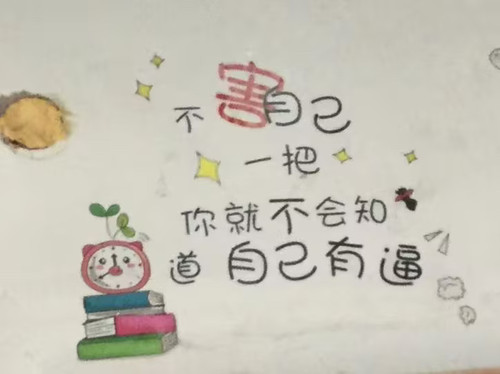 不害自己
一把
你就不会知
道自己有逼